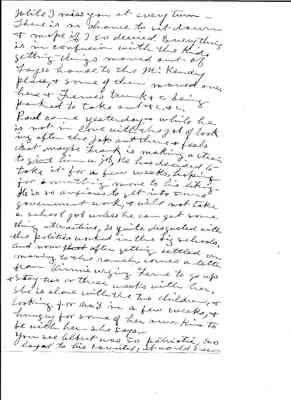 while I miss you at every turn —
There is no chance to sit down
& mope if I so desired Everything
is in confusion with the Kids
getting things moved out of
house to the McKendry
place, & some of them moved over
here & Ferne's trunk & c being
packed to take out & c & c.
Paul came yesterday & while he
is not in love with the job of look
ing after the out there & feels
that maybe Frank is making a
to give him a job, he has decided to
take it for a few weeks, hoping for
for something more to his liking
He is so anxious to get into some
government work, & will not take
a school job unless he can get some
thing attractive, is quite disgusted with
the politics worked in the schools,
and now after getting settled on
moving to the ranch, comes a letter
from urging Ferne to go up
& stay two or three weeks with her.
She is alone with the two children, &
looking for in a few weeks, &
hungry for some of her own kin to
be with her she says.
You see Albert was so patriotic, so
loyal to his country, it would seem